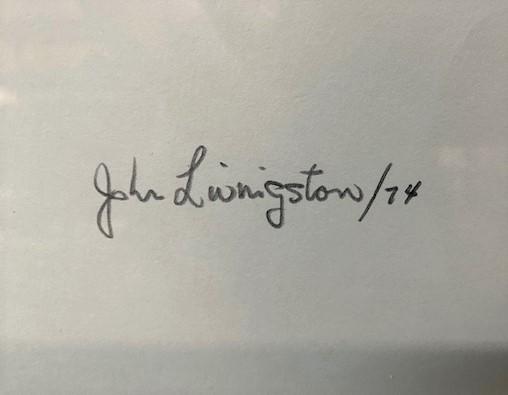 John Livingston/74